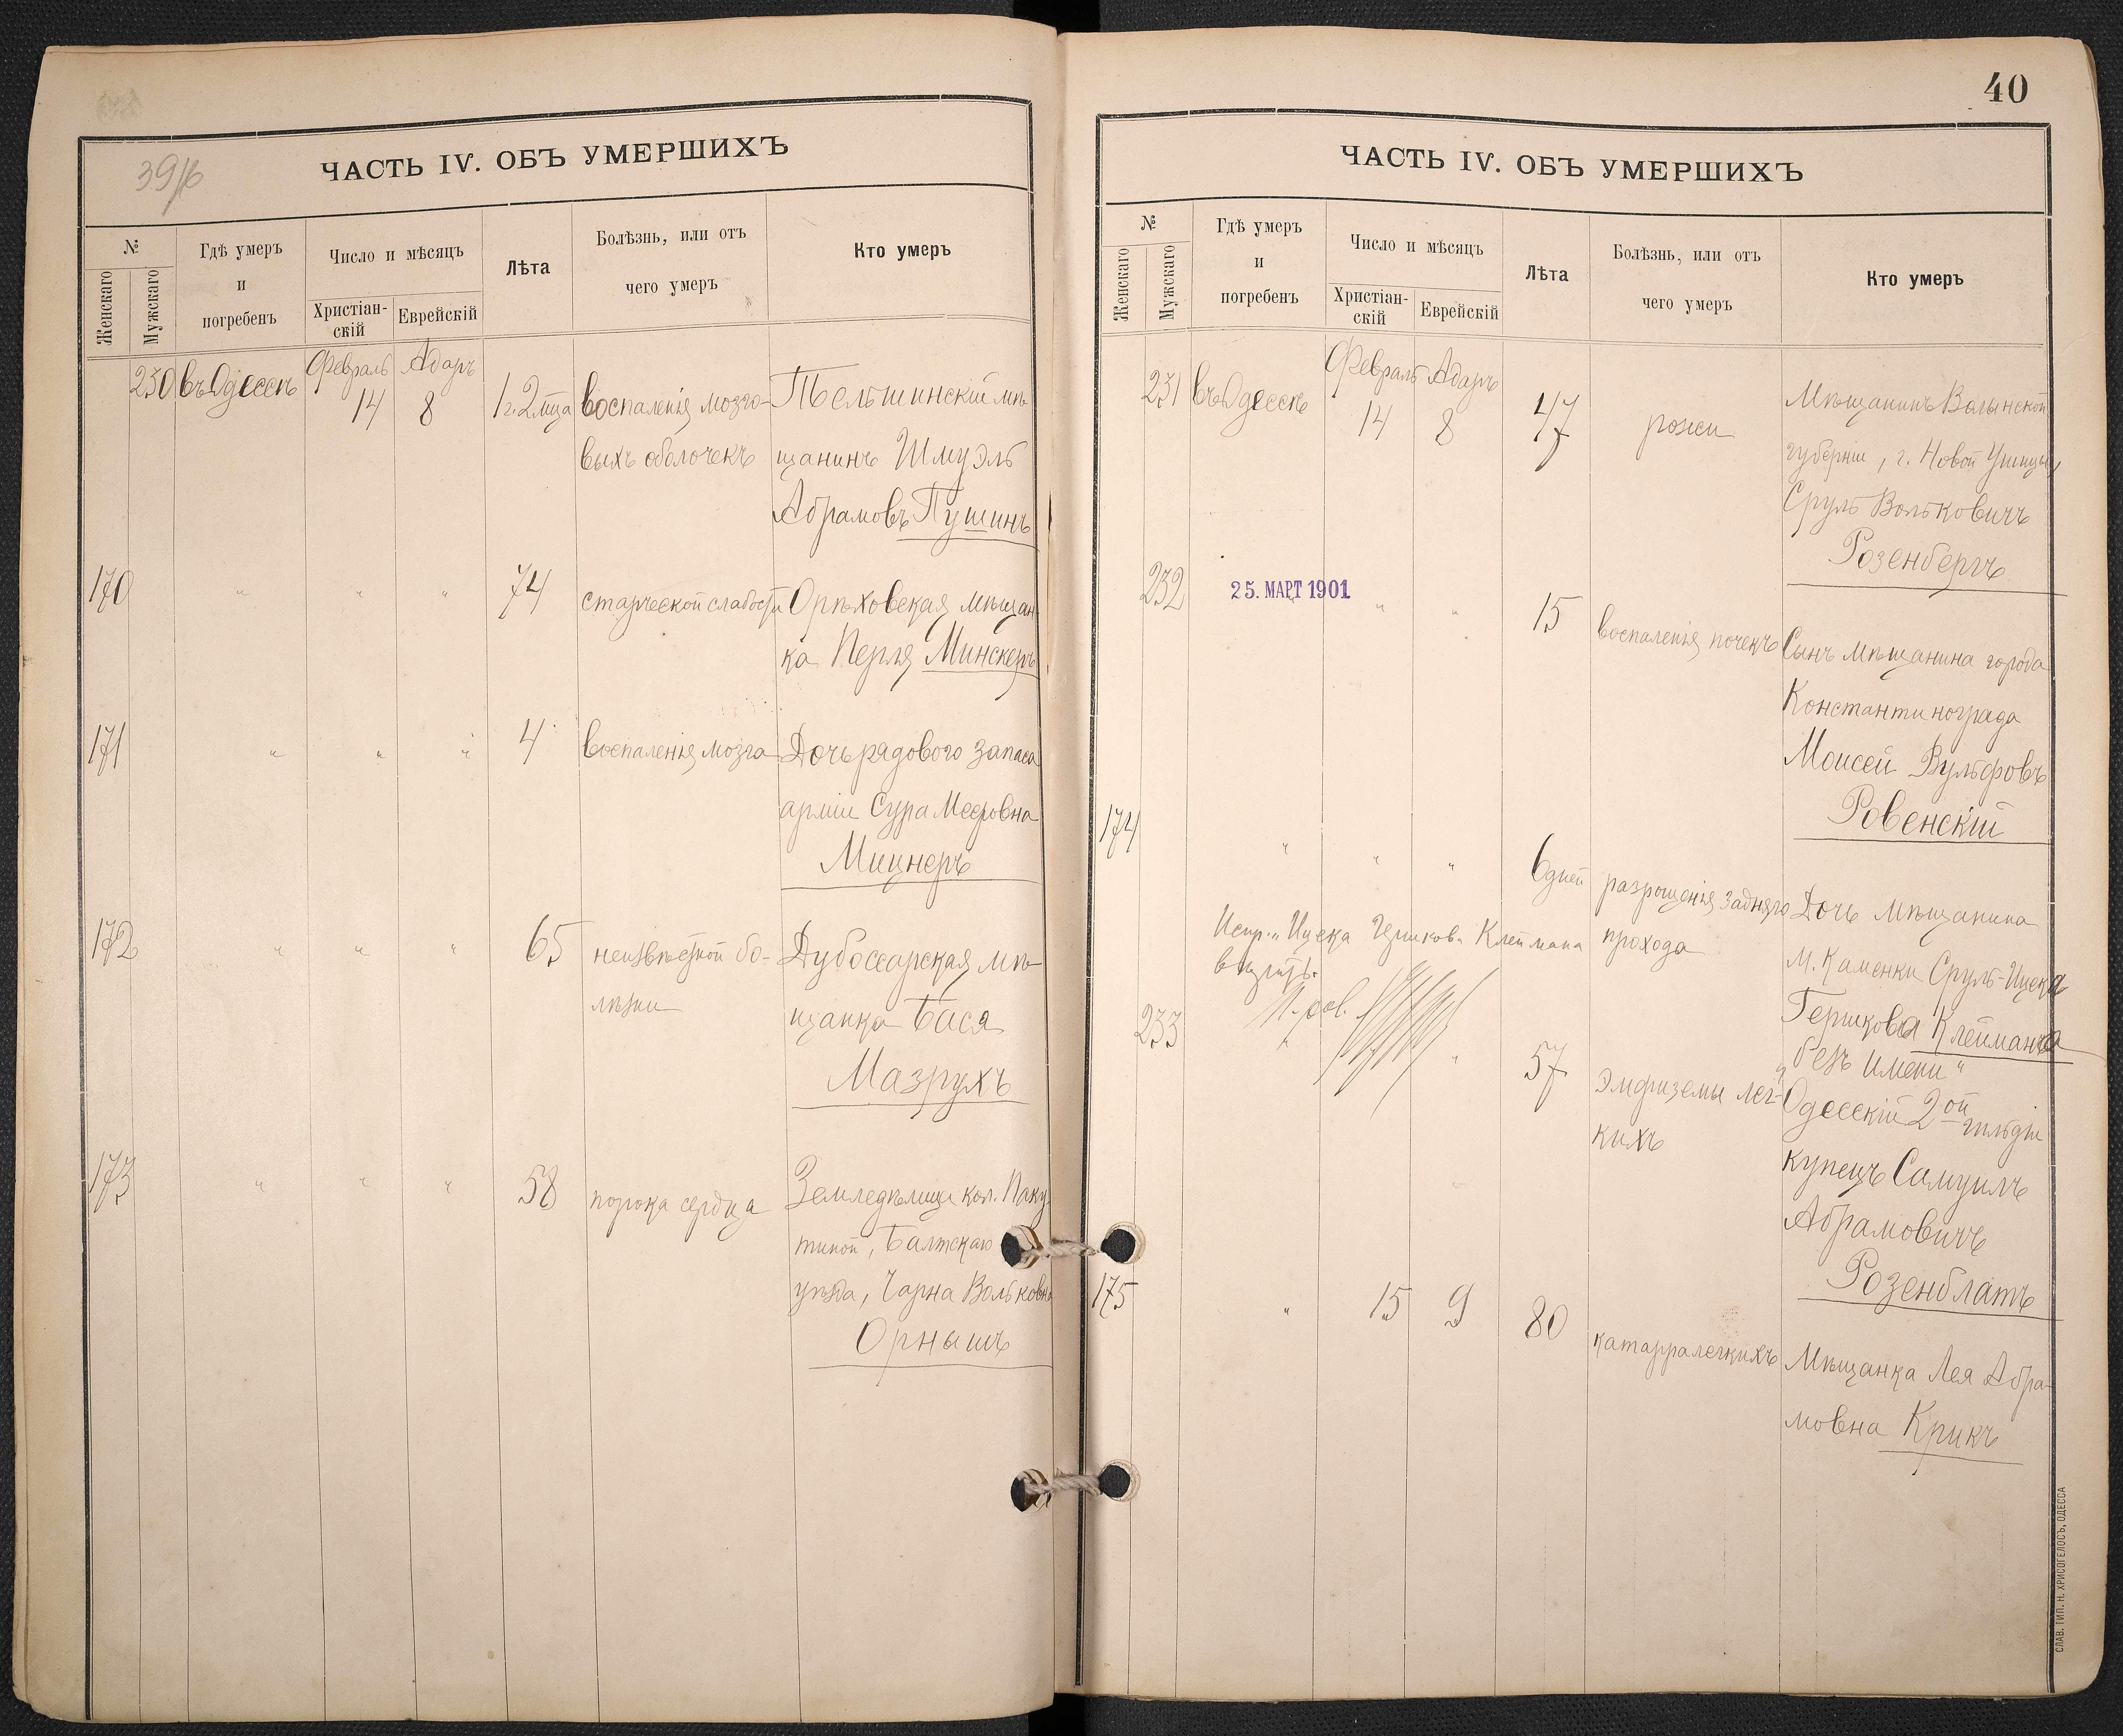 39/б
ЧАСТЬ IV. ОБЪ УМЕРШИХЪ
№
Женскаго
Мужскаго
Гдѣ умеръ
и
погребенъ
Число и мѣсяцъ
Христіан-
скій
Еврейскій
Лѣта
Болѣзнь, или отъ
чего умеръ
Кто умеръ
230 въ Одессѣ Февраль 14 Адаръ 8 1 г. 2 м-ца воспаленія мозго- Тельшинскій мѣ-
выхъ оболочекъ щанинъ Шмуэль
Абрамовъ Пушинъ
170 " " " 74 старческой слабости Орѣховская мѣщан-
ка Перля Минскеръ
171 " " " 4 воспаленія мозга Дочь рядового запаса
арміи Сура Мееровна
Мицнеръ
172 " " " 65 неизвѣстной бо- Дубоссарская мѣ-
лѣзни щанка Бася
Мазрухъ
173 " " " 58 порока сердца Земледѣлица кол. Паку-
тиной, Балтскаго
уѣзда, Чарна Вольковна
Орнышъ
40
ЧАСТЬ IV. ОБЪ УМЕРШИХЪ
№
Женскаго
Мужскаго
Гдѣ умеръ
и
погребенъ
Число и мѣсяцъ
Христіан-
скій
Еврейскій
Лѣта
Болѣзнь, или отъ
чего умеръ
Кто умеръ
231 въ Одессѣ Февраль 14 Адаръ 8 47 рожи Мѣщанинъ Волынской
губерніи, г. Новой Ушицы,
Сруль Вольковичъ
Розенбергъ
232 25. МАРТ 1901 " " 15 воспаленія почекъ Сынъ мѣщанина города
Константинограда
Моисей Вульфовъ
Ровенскій
174 " " " 6 дней разрощенія задняго Дочь мѣщанина
прохода м. Каменки Сруль-Ицека
Испр. "Ицека Гершкова Клеймана
вѣрить.
Гершкова Клеймана
"безъ имени"
233 " " 57 эмфиземы лег- Одесскій 2ой гильдіи
кихъ купецъ Самуилъ
Абрамовичъ
Розенблатъ
175 " 15 9 80 катарра легкихъ Мѣщанка Лея Абра-
мовна Крикъ
СЛАВ. ТИП. Н. ХРИСОГЕЛОСЪ, ОДЕССА